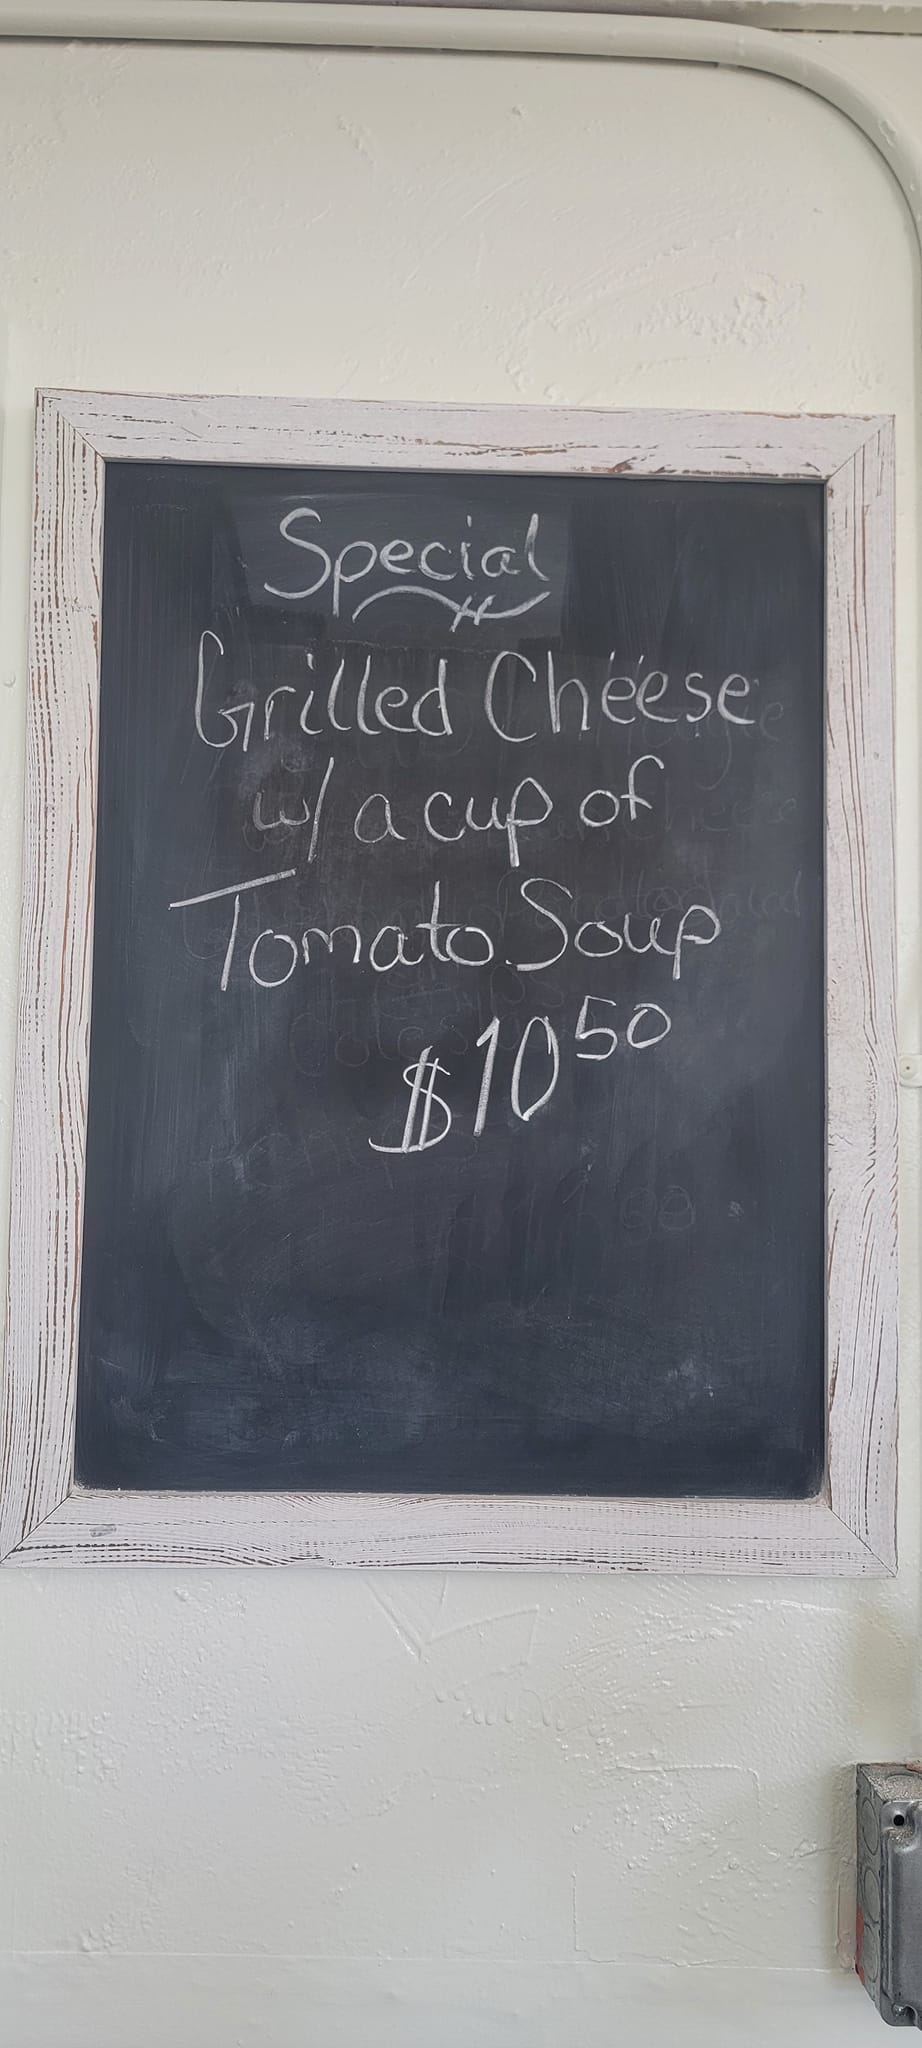 Special
Grilled Cheese
w/ a cup of
Tomato Soup
$10 50